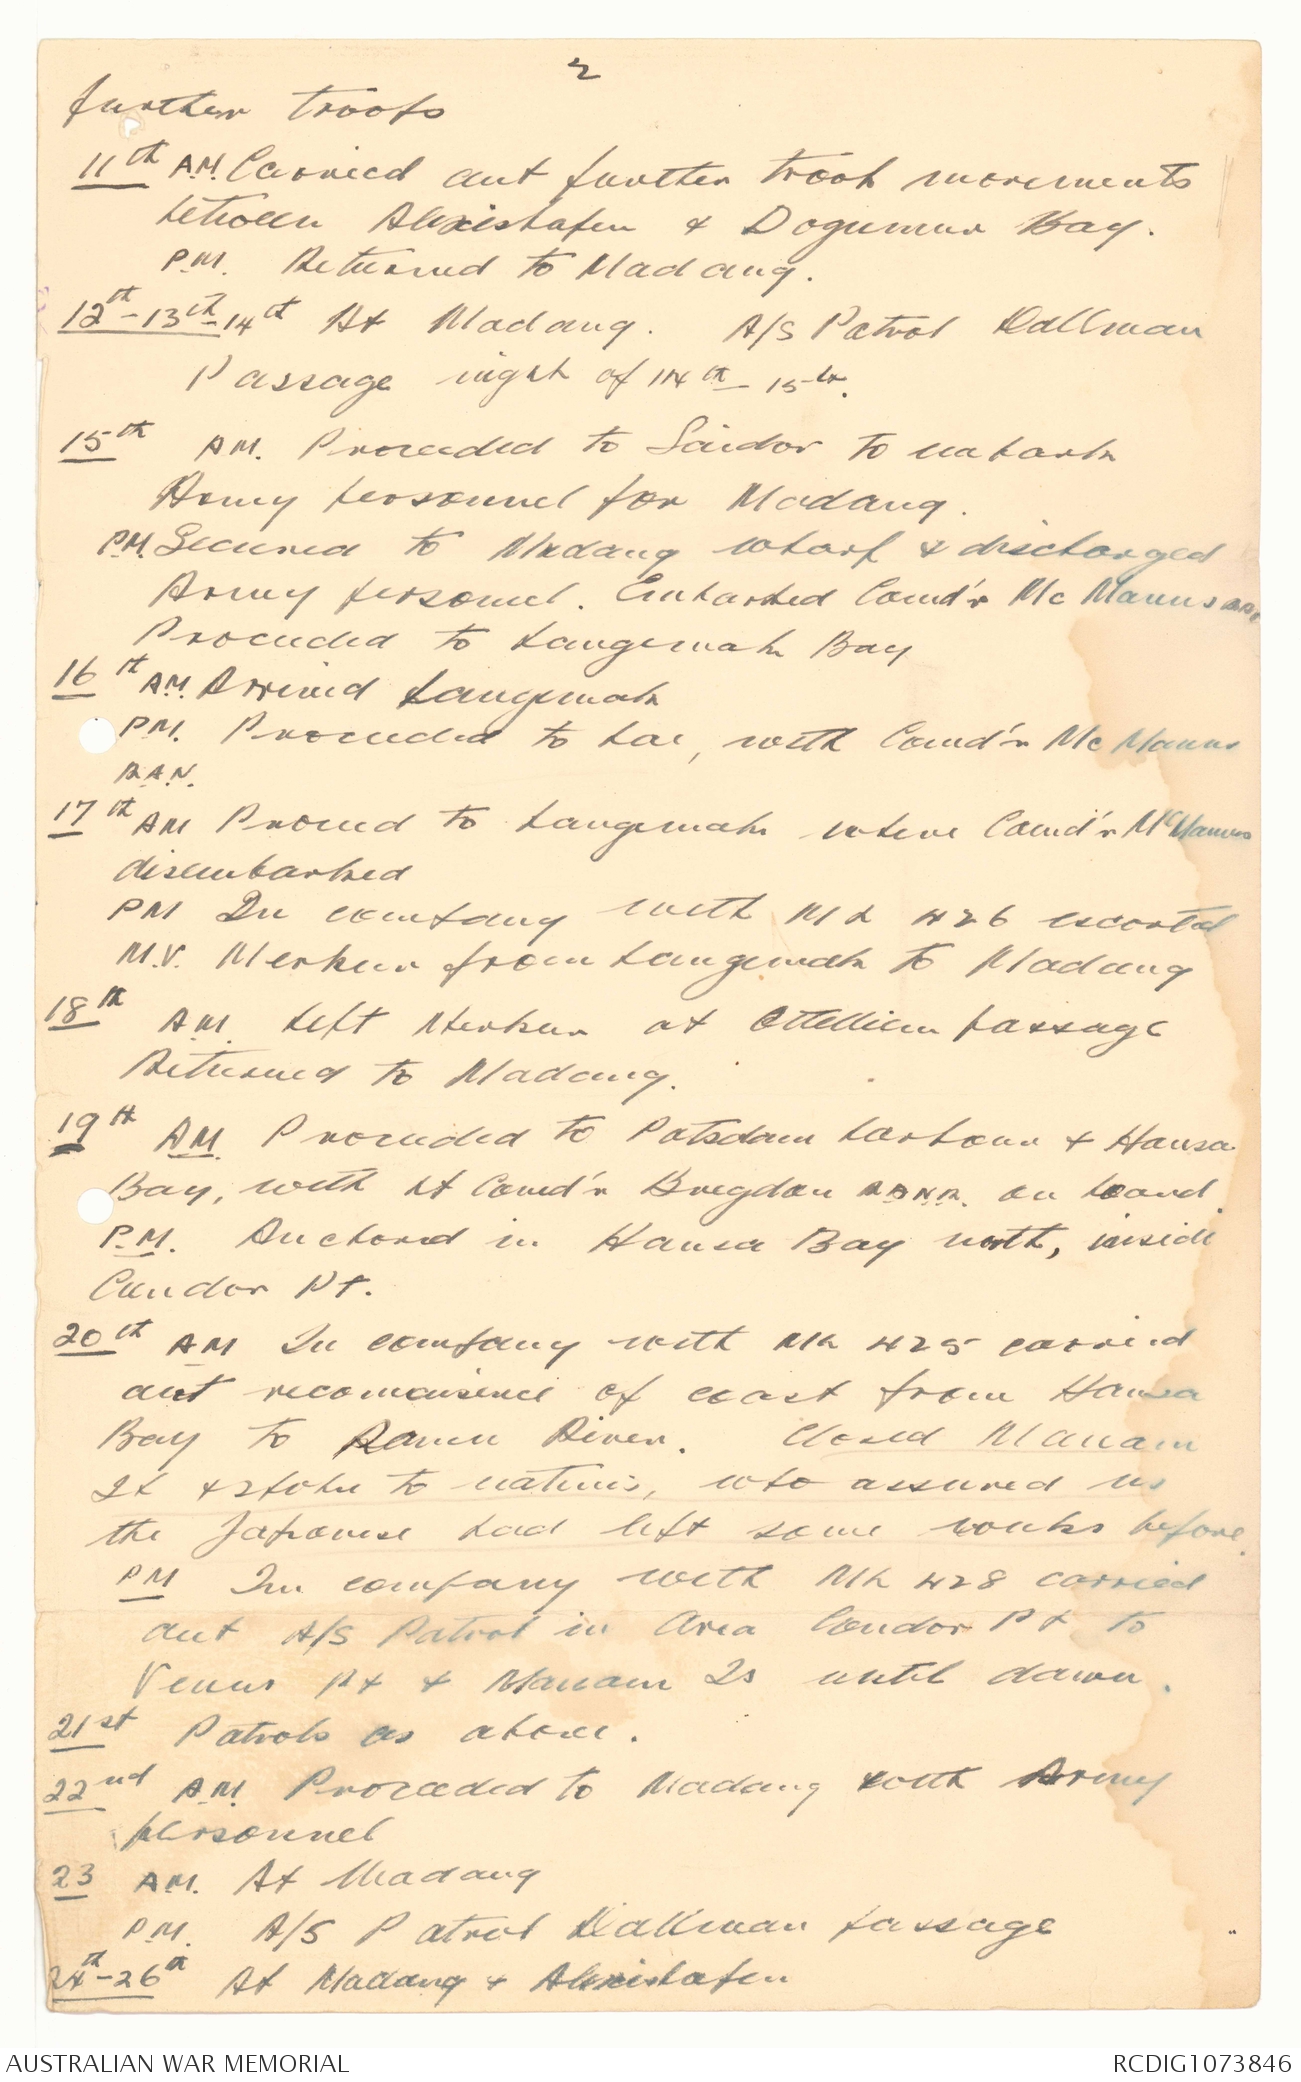 2
further troops
11th A.M. Carried out further troop movements
between Alexishafen & Dogumur Bay.
P.M. Returned to Madang.
12th-13th-14th At Madang. A/S Patrol Dallman
Passage night of 14th - 15th.
15th AM. Proceeded to Saidor to embark
Army personnel for Madang.
P.M. Secured to Madang wharf & discharged
Army personnel. Embarked Comd'r McManus RAN
Proceeded to Langemak Bay
16th AM. Arrived Langemak
PM. Proceeded to Lae, with Comd'r McManus
R.A.N.
17th AM Proceed to Langemak where Comd'r McManus
disembarked
PM In company with ML 426 escorted
M.V. Merkur from Langemak to Madang
18th AM. Left Merkur at Ottilien passage
Returned to Madang.
19th AM. Proceeded to Potsdam harbour & Hansa
Bay, with Lt Comd'r Bregdon R.A.N.R. on board.
P.M. Anchored in Hansa Bay north, inside
Condor Pt.
20th AM In company with ML 425 carried
out reconnaisence of coast from Hansa
Bay to Ramu River. Closed Manam
Is & spoke to natives, who assured us
the Japanese had left some weeks before.
PM In company with ML 428 carried
out A/S Patrol in Area Condor Pt to
Venus Pt & Manam Is until dawn.
21st Patrols as above.
22nd A.M. Proceeded to Madang with Army
personnel
23 AM. At Madang
PM. A/S Patrol Dallman passage
24th-26th At Madang & Alexishafen
AUSTRALIAN WAR MEMORIAL
RCDIG1073846